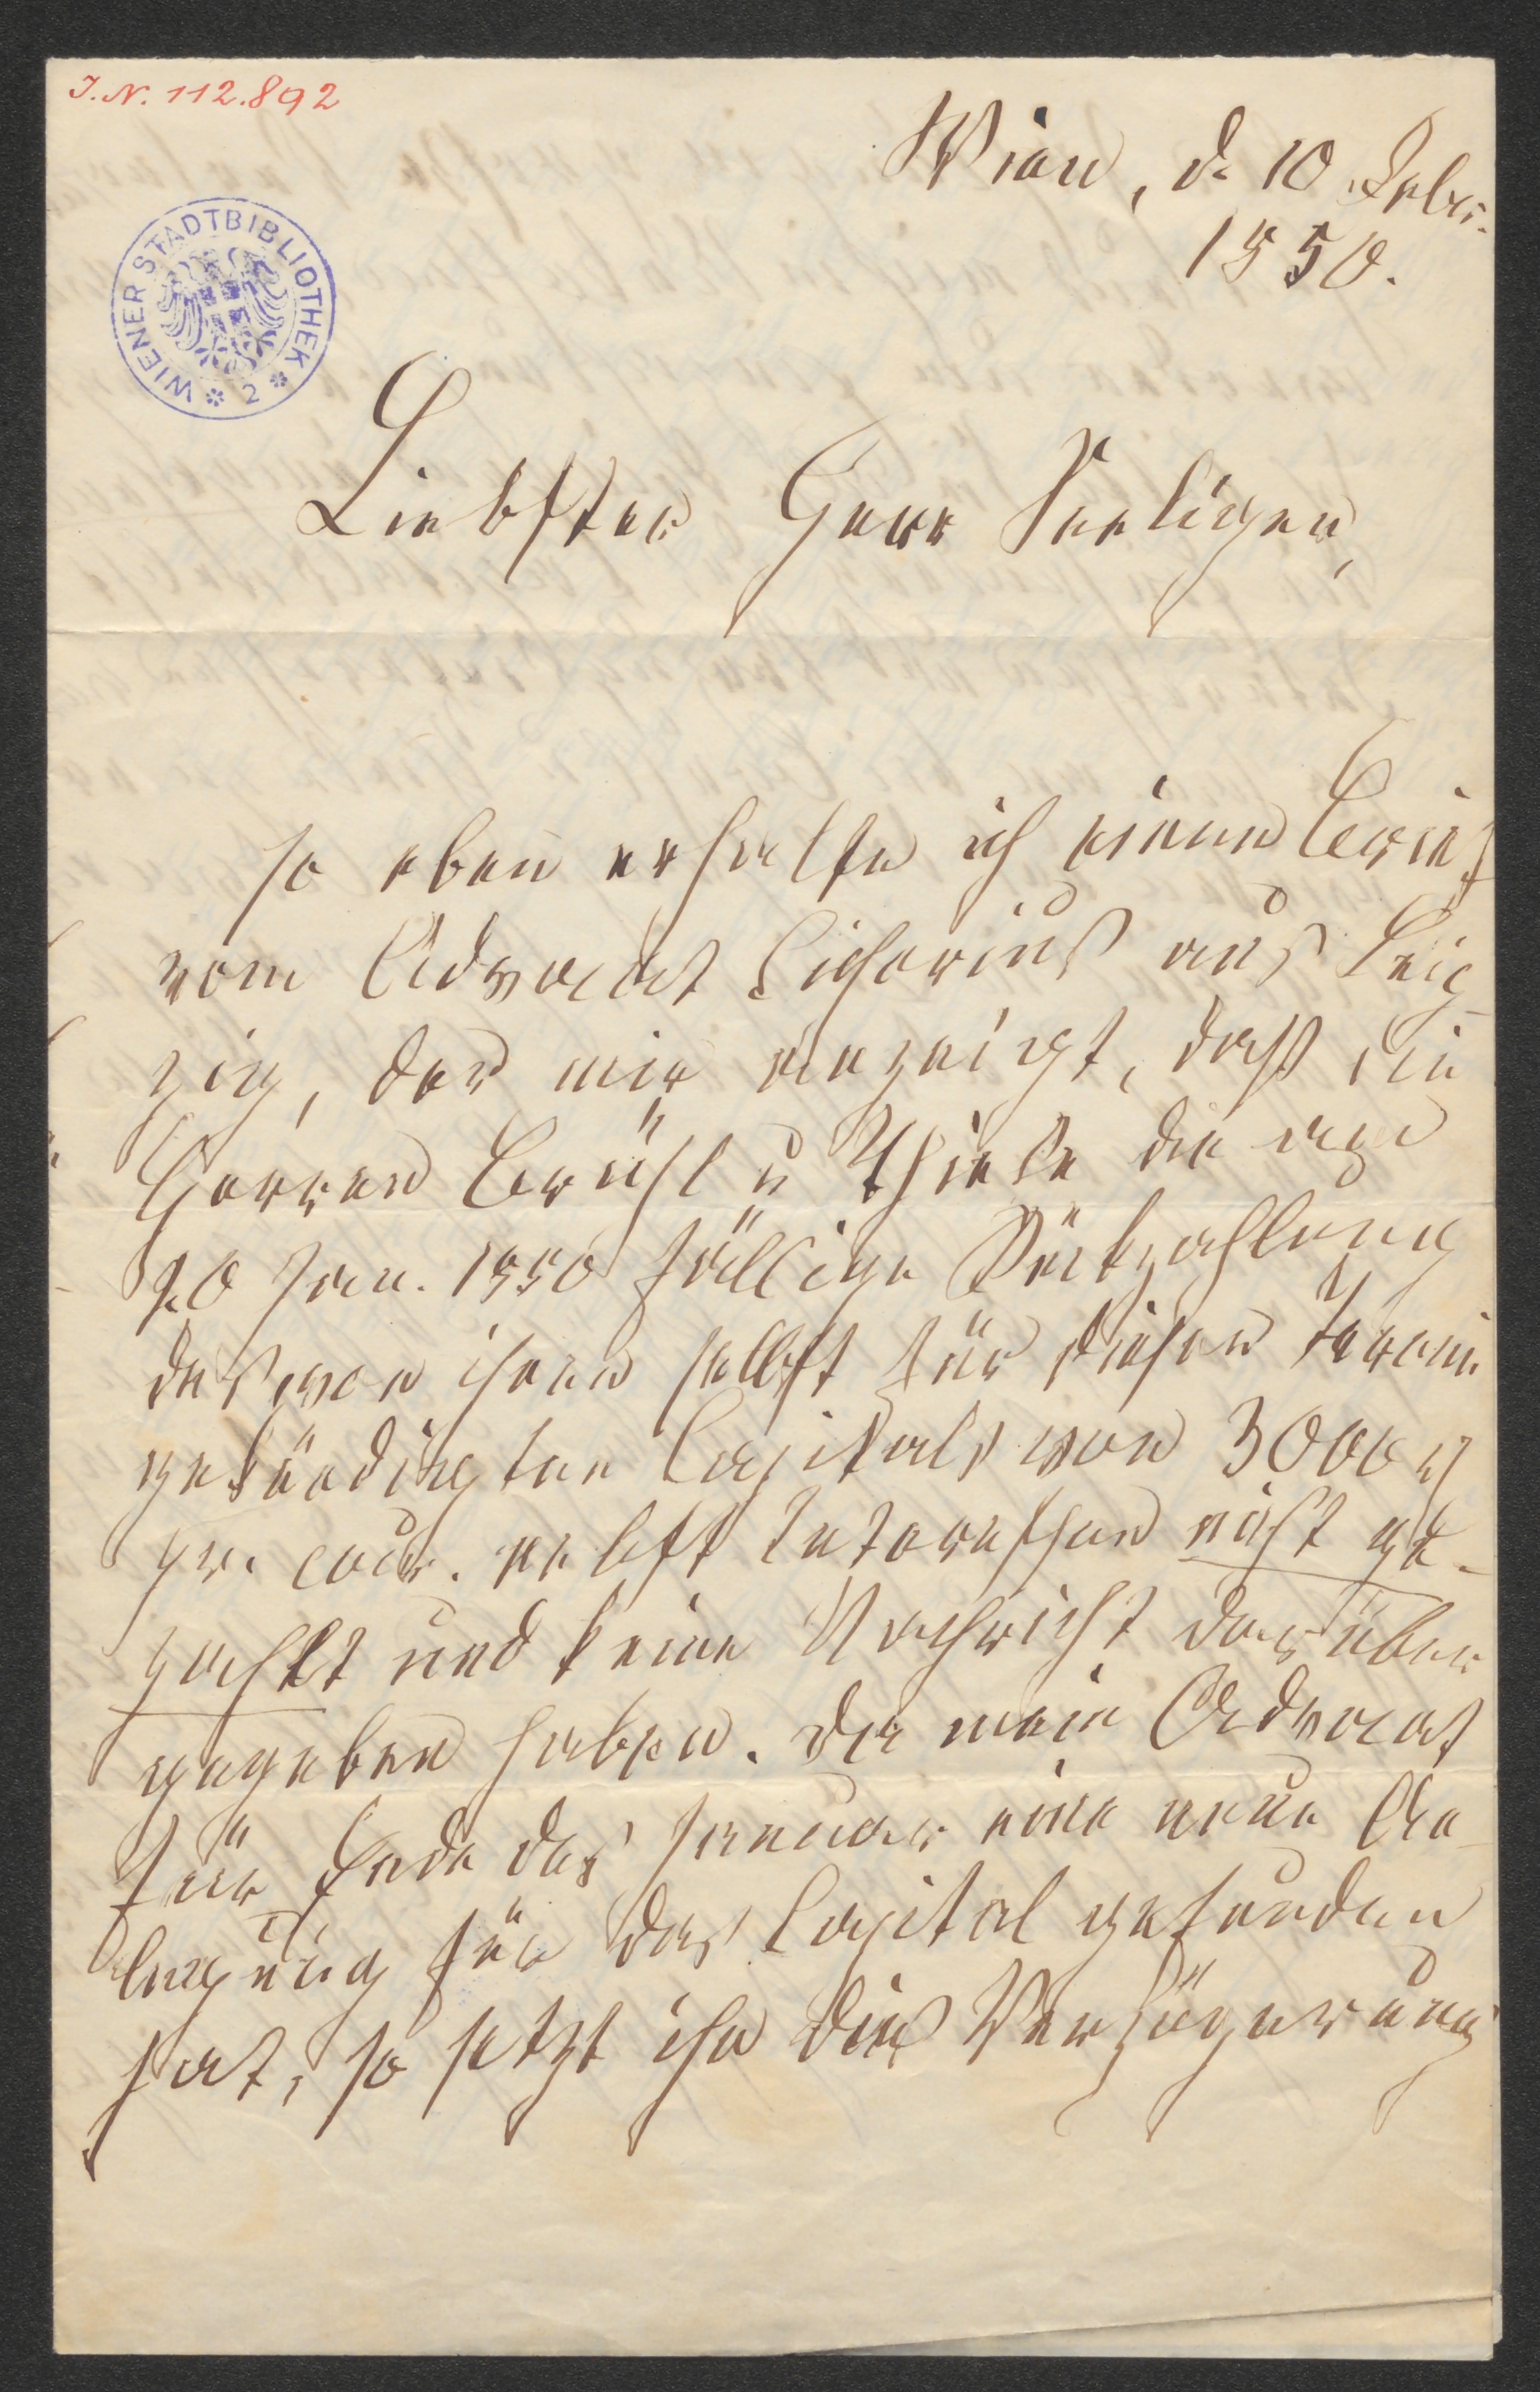 I.N. 112.892
WIENER STADTBIBLIOTHEK
2
Wien, d. 10 Febr.
1850.
Liebster Herr Seeligen,
so eben erhalte ich einen Brief
vom Advocat Cichorius aus Leip-
zig, der mir anzeigt, daß die
Herren Brühl u Thiele die am
20 Jan. 1850 fällige Rückzahlung
des von ihnen selbst für diesen Termin
gekündigten Capitals von 3000
pr. cour. nebst Interessen nicht ge-
zahlt und keine Nachricht darüber
gegeben haben. Da mein Advocat
für Ende des Januar eine neue An-
legung für das Capital gefunden
hat, so setzt ihn die Verzögerung